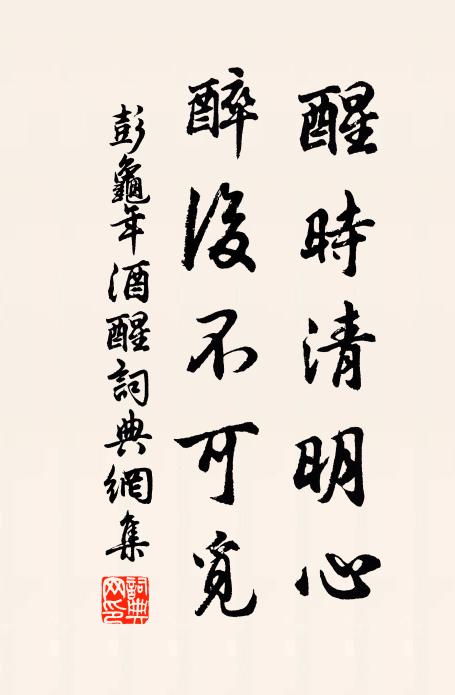 醒時清明心
醉後不可覓
彭龜年酒醒詞典網集
詞典網印